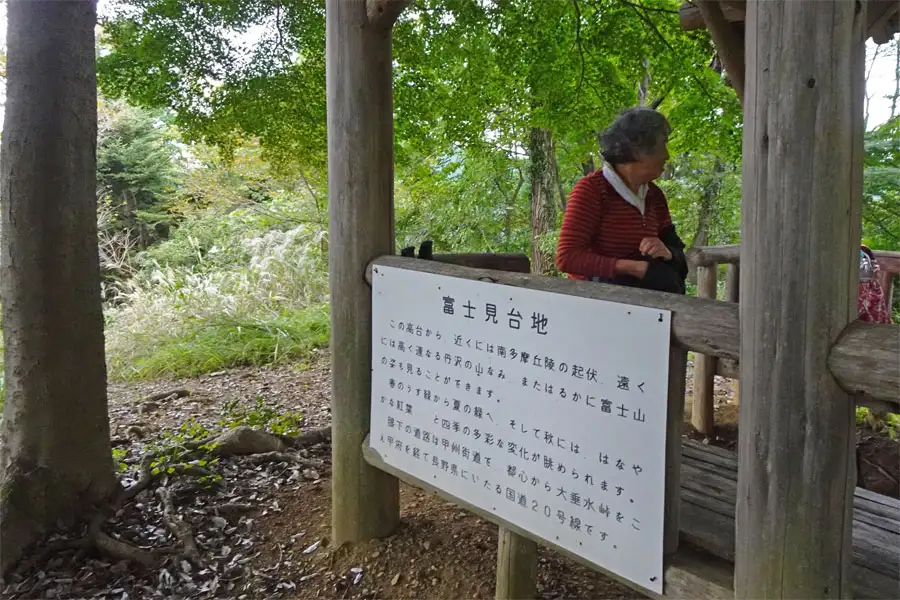 富士見台地
この高台から 近くには南多摩丘陵の起伏 遠く
には高く連なる丹沢の山なみ またはるかに富士山
の姿も見ることができます。
春のうす緑から夏の緑へ そして秋には はなや
かな紅葉 と四季の多彩な変化が眺められます。
脚下の道路は甲州街道で 都心から大垂水峠をこ
え甲府を経て長野県にいたる国道20号線です。